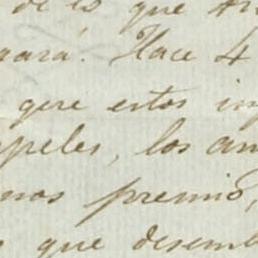 de lo que
gará. Hace 4
que estos in
apeles, los am
nos premio,
que desemb